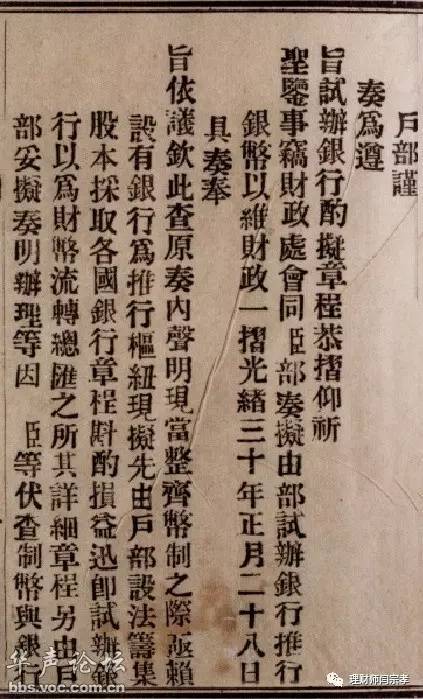 戶部謹
奏爲遵
旨試辦銀行酌擬章程恭摺仰祈
聖鑒事竊財政處會同臣部奏擬由部試辦銀行推行
銀幣以維財政一摺光緒三十年正月二十八日
具奏奉
旨依議欽此查原奏內聲明現當整齊幣制之際亟賴
設有銀行爲推行樞紐現擬先由戶部設法籌集
股本採取各國銀行章程斟酌損益迅卽試辦銀
行以爲財幣流轉總匯之所其詳細章程另由臣
部妥擬奏明辦理等因 臣等伏查制幣與銀行
华声论坛
bbs.voc.com.cn
理财师闫宗孝